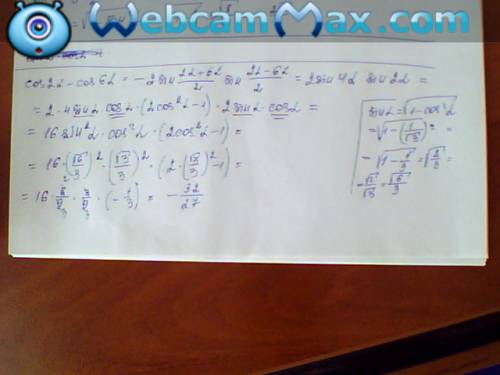 WebcamMax.com
cos2α - cos6α = -2sin (2α+6α)/2 sin (2α-6α)/2 = 2sin4α sin2α =
= 2·4sinα cosα·(2cos²α-1)·2sinα·cosα =
= 16sin²α·cos²α·(2cos²α-1) =
= 16·(√6/3)²·(√3/3)²·(2·(√3/3)²-1) =
= 16 · · (-1/3) = -32/27
sinα = √1-cos²α
= √1-(1/√3)² =
= √1-1/3 = √2/3 =
= √2/√3 = √6/3